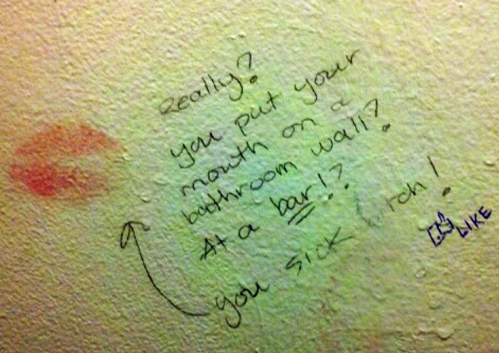 Really?
you put your
mouth on a
bathroom wall?
At a bar!?
you sick bitch!
LIKE